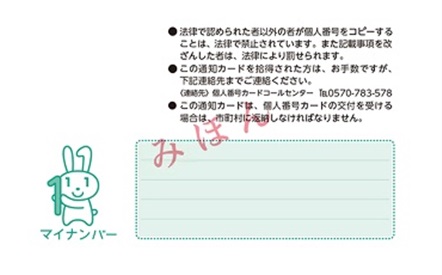 ● 法律で認められた者以外の者が個人番号をコピーする
ことは、法律で禁止されています。また記載事項を改
ざんした者は、法律により罰せられます。
● この通知カードを拾得された方は、お手数ですが、
下記連絡先までご連絡ください。
《連絡先》個人番号カードコールセンター ℡0570-783-578
● この通知カードは、個人番号カードの交付を受ける
場合は、市町村に返納しなければなりません。
みほん
1
マイナンバー